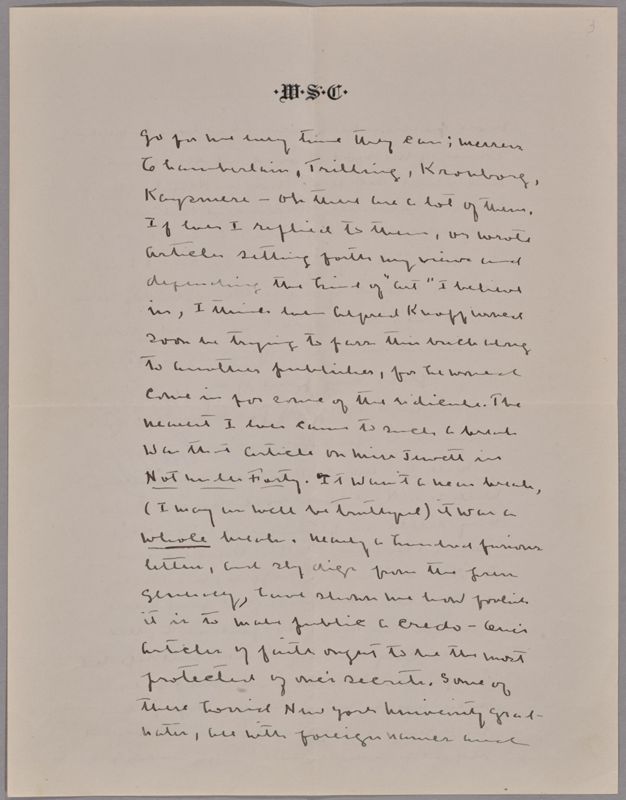 3
·W·S·C·
go for me every time they can; Messrs
Chamberlain, Trilling, Kronborg,
Kaysmere – oh there are a lot of them.
If ever I replied to them, or wrote
articles setting forth my views and
defending the kind of "art" I believe
in, I think even Alfred Knopf would
soon be trying to pass this back along
to another publisher, for he would
come in for some of the ridicule. The
nearest I ever came to such a break
was that article on Miss Jewett in
Not Under Forty. It wasn't a near break,
(I may as well be truthful) it was a
whole break. Nearly a hundred furious
letters, and sly digs from the
generally, have shown me how foolish
it is to make public a credo – One's
articles of faith ought to be the most
protected of one's secrets. Some of
these horrid New York University grad-
uates, all with foreign names and